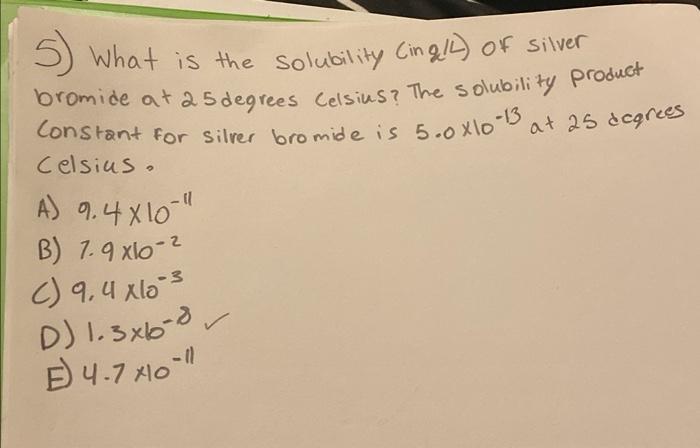 5) What is the solubility (in g/L) of silver
bromide at 25 degrees Celsius? The solubility product
Constant for silver bromide is 5.0 x10⁻¹³ at 25 degrees
Celsius.
A) 9.4 x10⁻¹¹
B) 7.9 x10⁻²
C) 9.4 x10⁻³
D) 1.3x10⁻⁸ ✓
E) 4.7 x10⁻¹¹